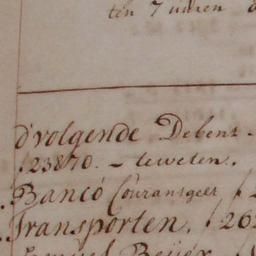 ten 7 uuren
d'volgende Debent.
ƒ 23870. – teweten.
Banco Courantgelt ƒ
Transporten. ƒ 26
Beijer